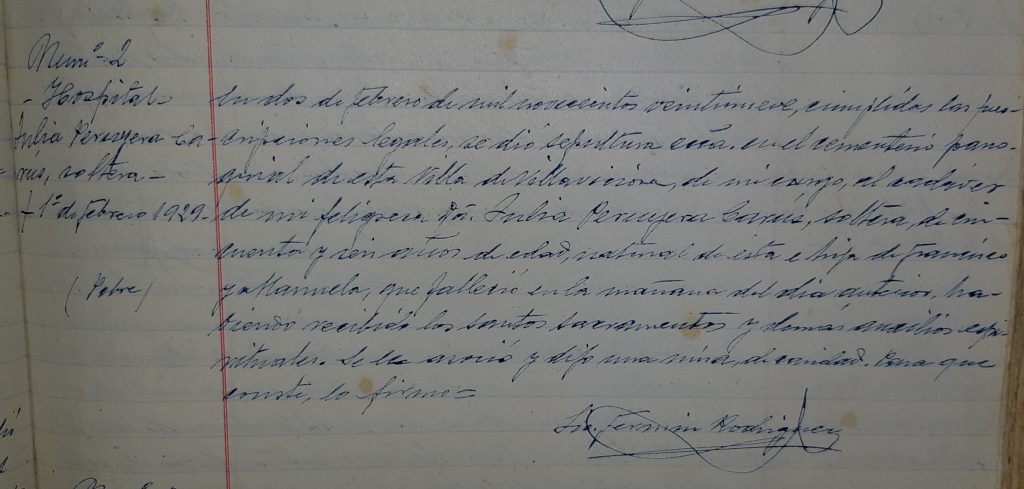 Num.º 2
- Hospital -
Julia Peruyera Ca-
rús, soltera -
† 1º de febrero 1929 -
(Pobre)
En dos de febrero de mil novecientos veintinueve, cumplidas las pres-
cripciones legales, se dió sepultura ecca. en el cementerio parro-
quial de esta Villa de Villaviciosa, de mi cargo, al cadáver
de mi feligresa Dª. Julia Peruyera Carús, soltera, de cin-
cuenta y seis años de edad, natural de esta e hija de Francisco
y Manuela, que falleció en la mañana del día anterior, ha-
biendo recibido los santos sacramentos y demás auxilios espi-
rituales. Se le asoció y dijo una misa, de caridad. Para que
conste, lo firmo =
Fermín Rodríguez